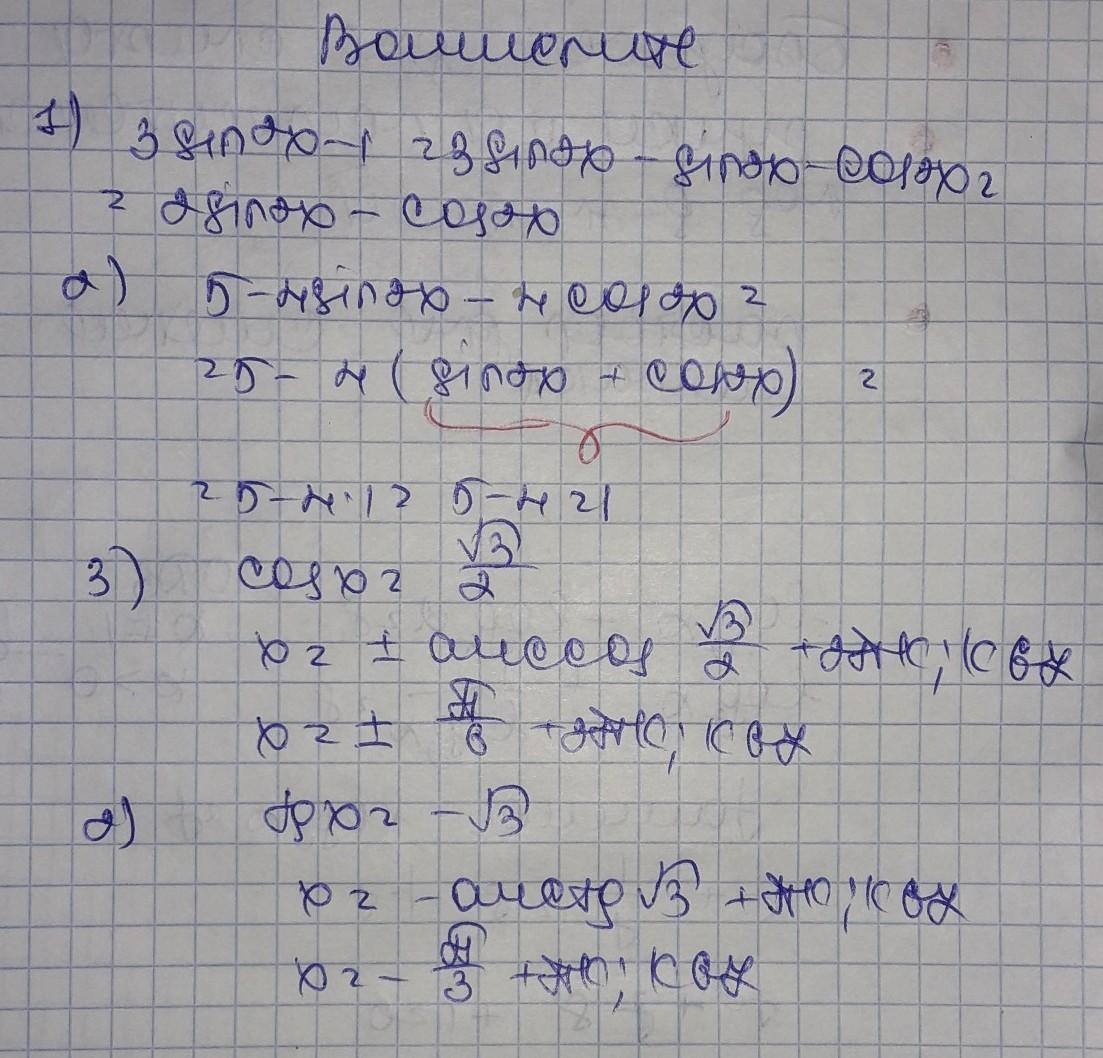 Вычислите
1) 3 sin²x - 1 = 3 sin²x - sin²x - cos²x =
= 2 sin²x - cos²x
2) 5 - 4 sin²x - 4 cos²x =
= 5 - 4 (sin²x + cos²x) =
= 5 - 4 · 1 = 5 - 4 = 1
3) cos x = √3/2
x = ± arccos √3/2 + 2πK; K ∈ Z
x = ± π/6 + 2πK; K ∈ Z
2) tg x = -√3
x = - arctg √3 + πK; K ∈ Z
x = - π/3 + πK; K ∈ Z